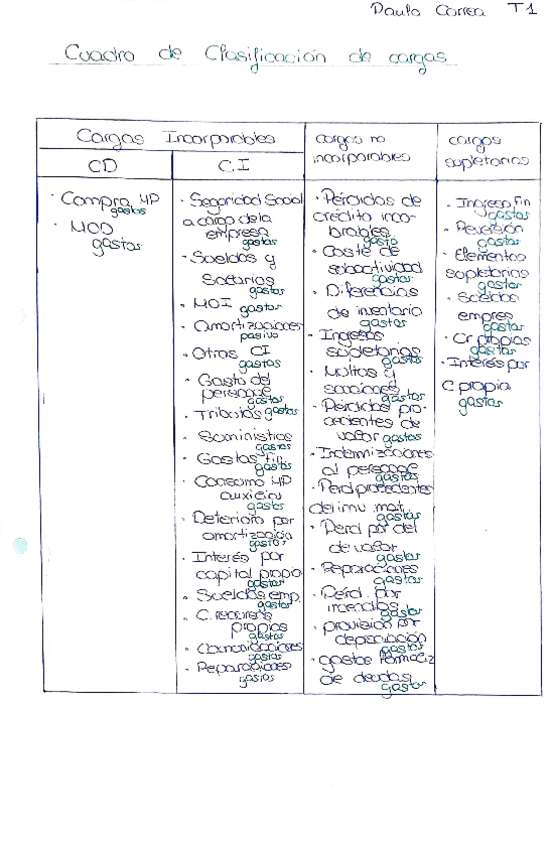 Paula Correa T1
Cuadro de Clasificación de cargas
Cargas Incorporables
cargas no
incorporables
cargas
supletorias
CD
C.I
· Compra MP
gastos
· MOD
gastos
· Seguridad Social
a cargo de la
empresa
gastos
· Sueldos y
Salarios
gastos
· MOI gastos
· Amortizaciones
pasivo
· Otros CI
gastos
· Gasto del
personal
gastos
· Tributos gastos
· Suministros
gastos
· Gastos fin
gastos
· Consumo MP
auxiliar
gastos
· Deterioro por
amortización
gastos
· Interés por
capital propio
gastos
· Sueldos emp.
gastos
· C. recursos
propios
gastos
· Comunicaciones
gastos
· Reparaciones
gastos
· Pérdidas de
crédito inco-
brables
gasto
· Coste de
subactividad
gastos
· Diferencias
de inventario
gastos
· Ingresos
supletorias
gastos
· Multas y
sanciones
gastos
· Pérdidas pro-
cedentes de
valor gastos
· Indemnizaciones
al personal
gastos
· Perd procedentes
del inv mat.
gastos
· Perd por det
de valor
gastos
· Reparaciones
gastos
· Pérd. por
incendios
gastos
· provisión por
depreciación
gastos
· gastos formaliz
de deudas
gastos
· Ingreso fin
gastos
· Reversión
gastos
· Elementos
supletorios
gastos
· Sueldos
empres
gastos
· Cr propios
gastos
· Interés por
C propio
gastos